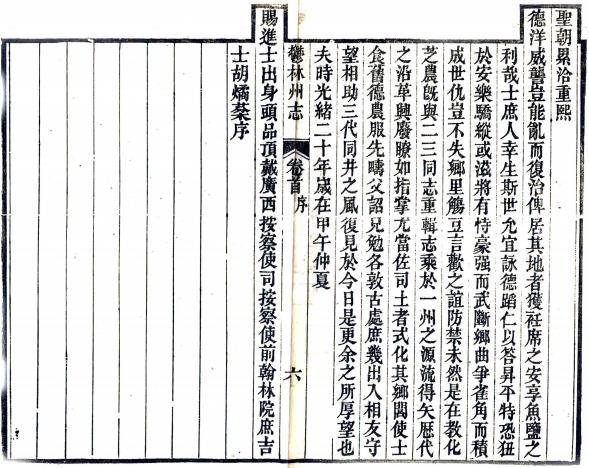 聖朝累洽重熙
德洋威讋豈能亂而復治俾居其地者獲袵席之安享魚鹽之
利哉士庶人幸生斯世允宜詠德蹈仁以答昇平特恐狃
於安樂驕縱或滋將有恃豪强而武斷鄉曲爭雀角而積
成世仇豈不失鄉里觴豆言歡之誼防禁未然是在教化
芝農旣與二三同志重輯志乘於一州之源流得失歷代
之沿革興廢瞭如指掌尤當佐司土者式化其鄉閭使士
食舊德農服先疇父詔兄勉各敦古處庶幾出入相友守
望相助三代同井之風復見於今日是更余之所厚望也
夫時光緒二十年歲在甲午仲夏
鬱林州志
卷首
序
六
賜進士出身頭品頂戴廣西按察使司按察使前翰林院庶吉
士胡燏棻序